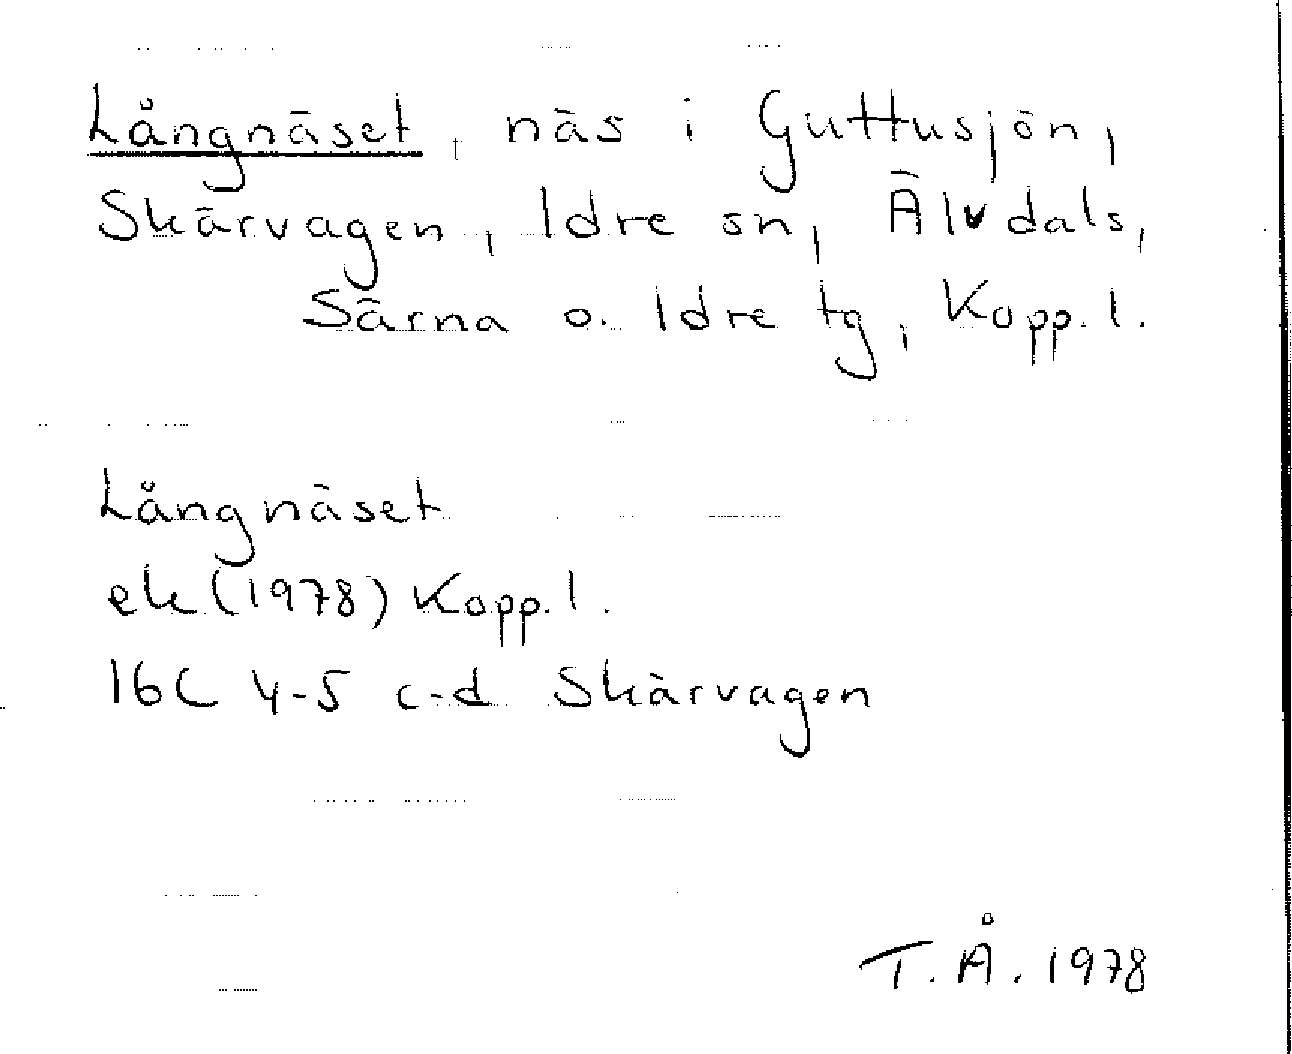 Långnäset, näs i Guttusjön,
Skärvagen, Idre sn, Älvdals,
Särna o. Idre tg, Kopp. l.
Långnäset
ek (1978) Kopp. l.
16C 4-5 c-d Skärvagen
T. Å. 1978